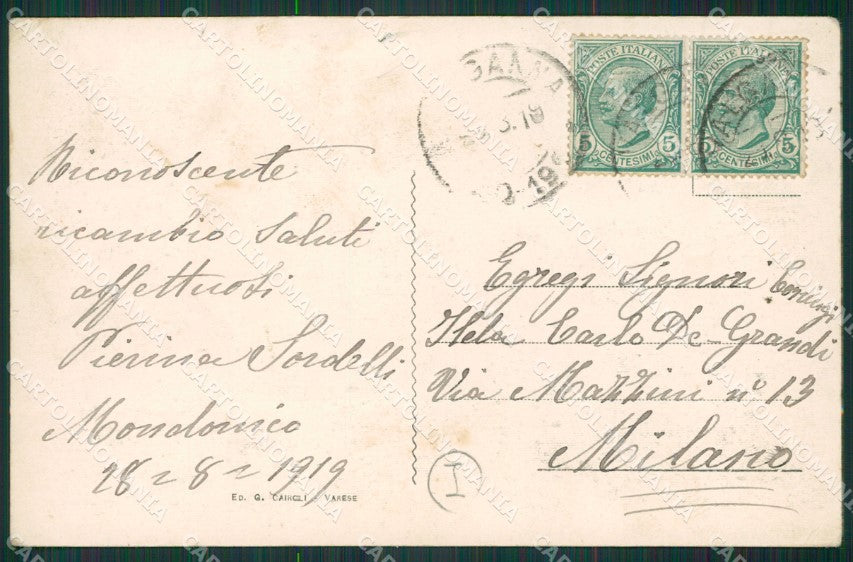 Riconoscente
ricambio saluti
affettuosi
Pierina Sordelli
Mondonico
28 = 8 = 1919
ED. G. CAIROLI - VARESE
GANNA
POSTE ITALIANE
5 5
CENTESIMI
POSTE ITALIANE
5 5
CENTESIMI
Egregi Signori Coniugi
Carlo De-Grandi
Via Mazzini nº 13
Milano
I
CARTOLINOMANIA